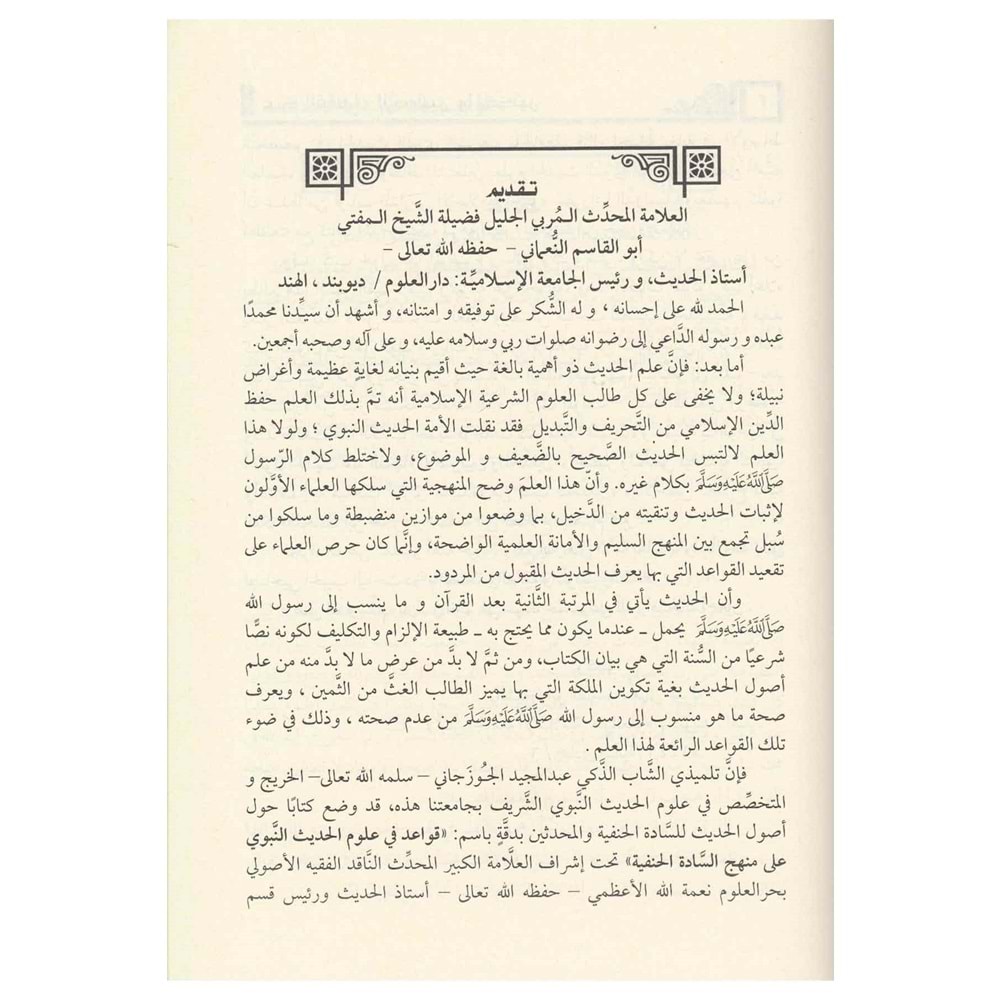 تقديم
العلامة المحدِّث المُربي الجليل فضيلة الشَّيخ المفتي
أبو القاسم النُّعماني – حفظه الله تعالى –
أستاذ الحديث، و رئيس الجامعة الإسلاميّة: دارالعلوم / ديوبند ، الهند
الحمد لله على إحسانه ، و له الشُّكر على توفيقه و امتنانه، و أشهد أن سيِّدنا محمدًا
عبده و رسوله الدَّاعي إلى رضوانه صلوات ربي وسلامه عليه، و على آله وصحبه أجمعين.
أما بعد: فإنَّ علم الحديث ذو أهمية بالغة حيث أقيم بنيانه لغايةٍ عظيمة وأغراض
نبيلة؛ ولا يخفى على كل طالب العلوم الشرعية الإسلامية أنه تمَّ بذلك العلم حفظ
الدِّين الإسلامي من التَّحريف والتَّبديل فقد نقلت الأمة الحديث النبوي ؛ ولولا هذا
العلم لالتبس الحديث الصَّحيح بالضَّعيف و الموضوع، ولاختلط كلام الرّسول
صَلَّى اللَّهُ عَلَيْهِ وَسَلَّمَ بكلام غيره. وأنّ هذا العلمَ وضح المنهجية التي سلكها العلماء الأوَّلون
لإثبات الحديث وتنقيته من الدَّخيل، بما وضعوا من موازين منضبطة وما سلكوا من
سُبل تجمع بين المنهج السليم والأمانة العلمية الواضحة، وإنَّما كان حرص العلماء على
تقعيد القواعد التي بها يعرف الحديث المقبول من المردود.
وأن الحديث يأتي في المرتبة الثَّانية بعد القرآن و ما ينسب إلى رسول الله
صَلَّى اللَّهُ عَلَيْهِ وَسَلَّمَ يحمل ـ عندما يكون مما يحتج به ـ طبيعة الإلزام والتكليف لكونه نصًّا
شرعيًا من السُّنة التي هي بيان الكتاب، ومن ثمَّ لا بدَّ من عرض ما لا بدَّ منه من علم
أصول الحديث بغية تكوين الملكة التي بها يميز الطالب الغثَّ من الثَّمين ، ويعرف
صحة ما هو منسوب إلى رسول الله صَلَّى اللَّهُ عَلَيْهِ وَسَلَّمَ من عدم صحته ، وذلك في ضوء
تلك القواعد الرائعة لهذا العلم .
فإنَّ تلميذي الشَّاب الذَّكي عبدالمجيد الجُوزَجاني – سلمه الله تعالى– الخريج و
المتخصِّص في علوم الحديث النَّبوي الشَّريف بجامعتنا هذه، قد وضع كتابًا حول
أصول الحديث للسَّادة الحنفية والمحدثين بدقَّةٍ باسم: «قواعد في علوم الحديث النَّبوي
على منهج السَّادة الحنفية» تحت إشراف العلَّامة الكبير المحدِّث النَّاقد الفقيه الأصولي
بحرالعلوم نعمة الله الأعظمي – حفظه الله تعالى – أستاذ الحديث ورئيس قسم